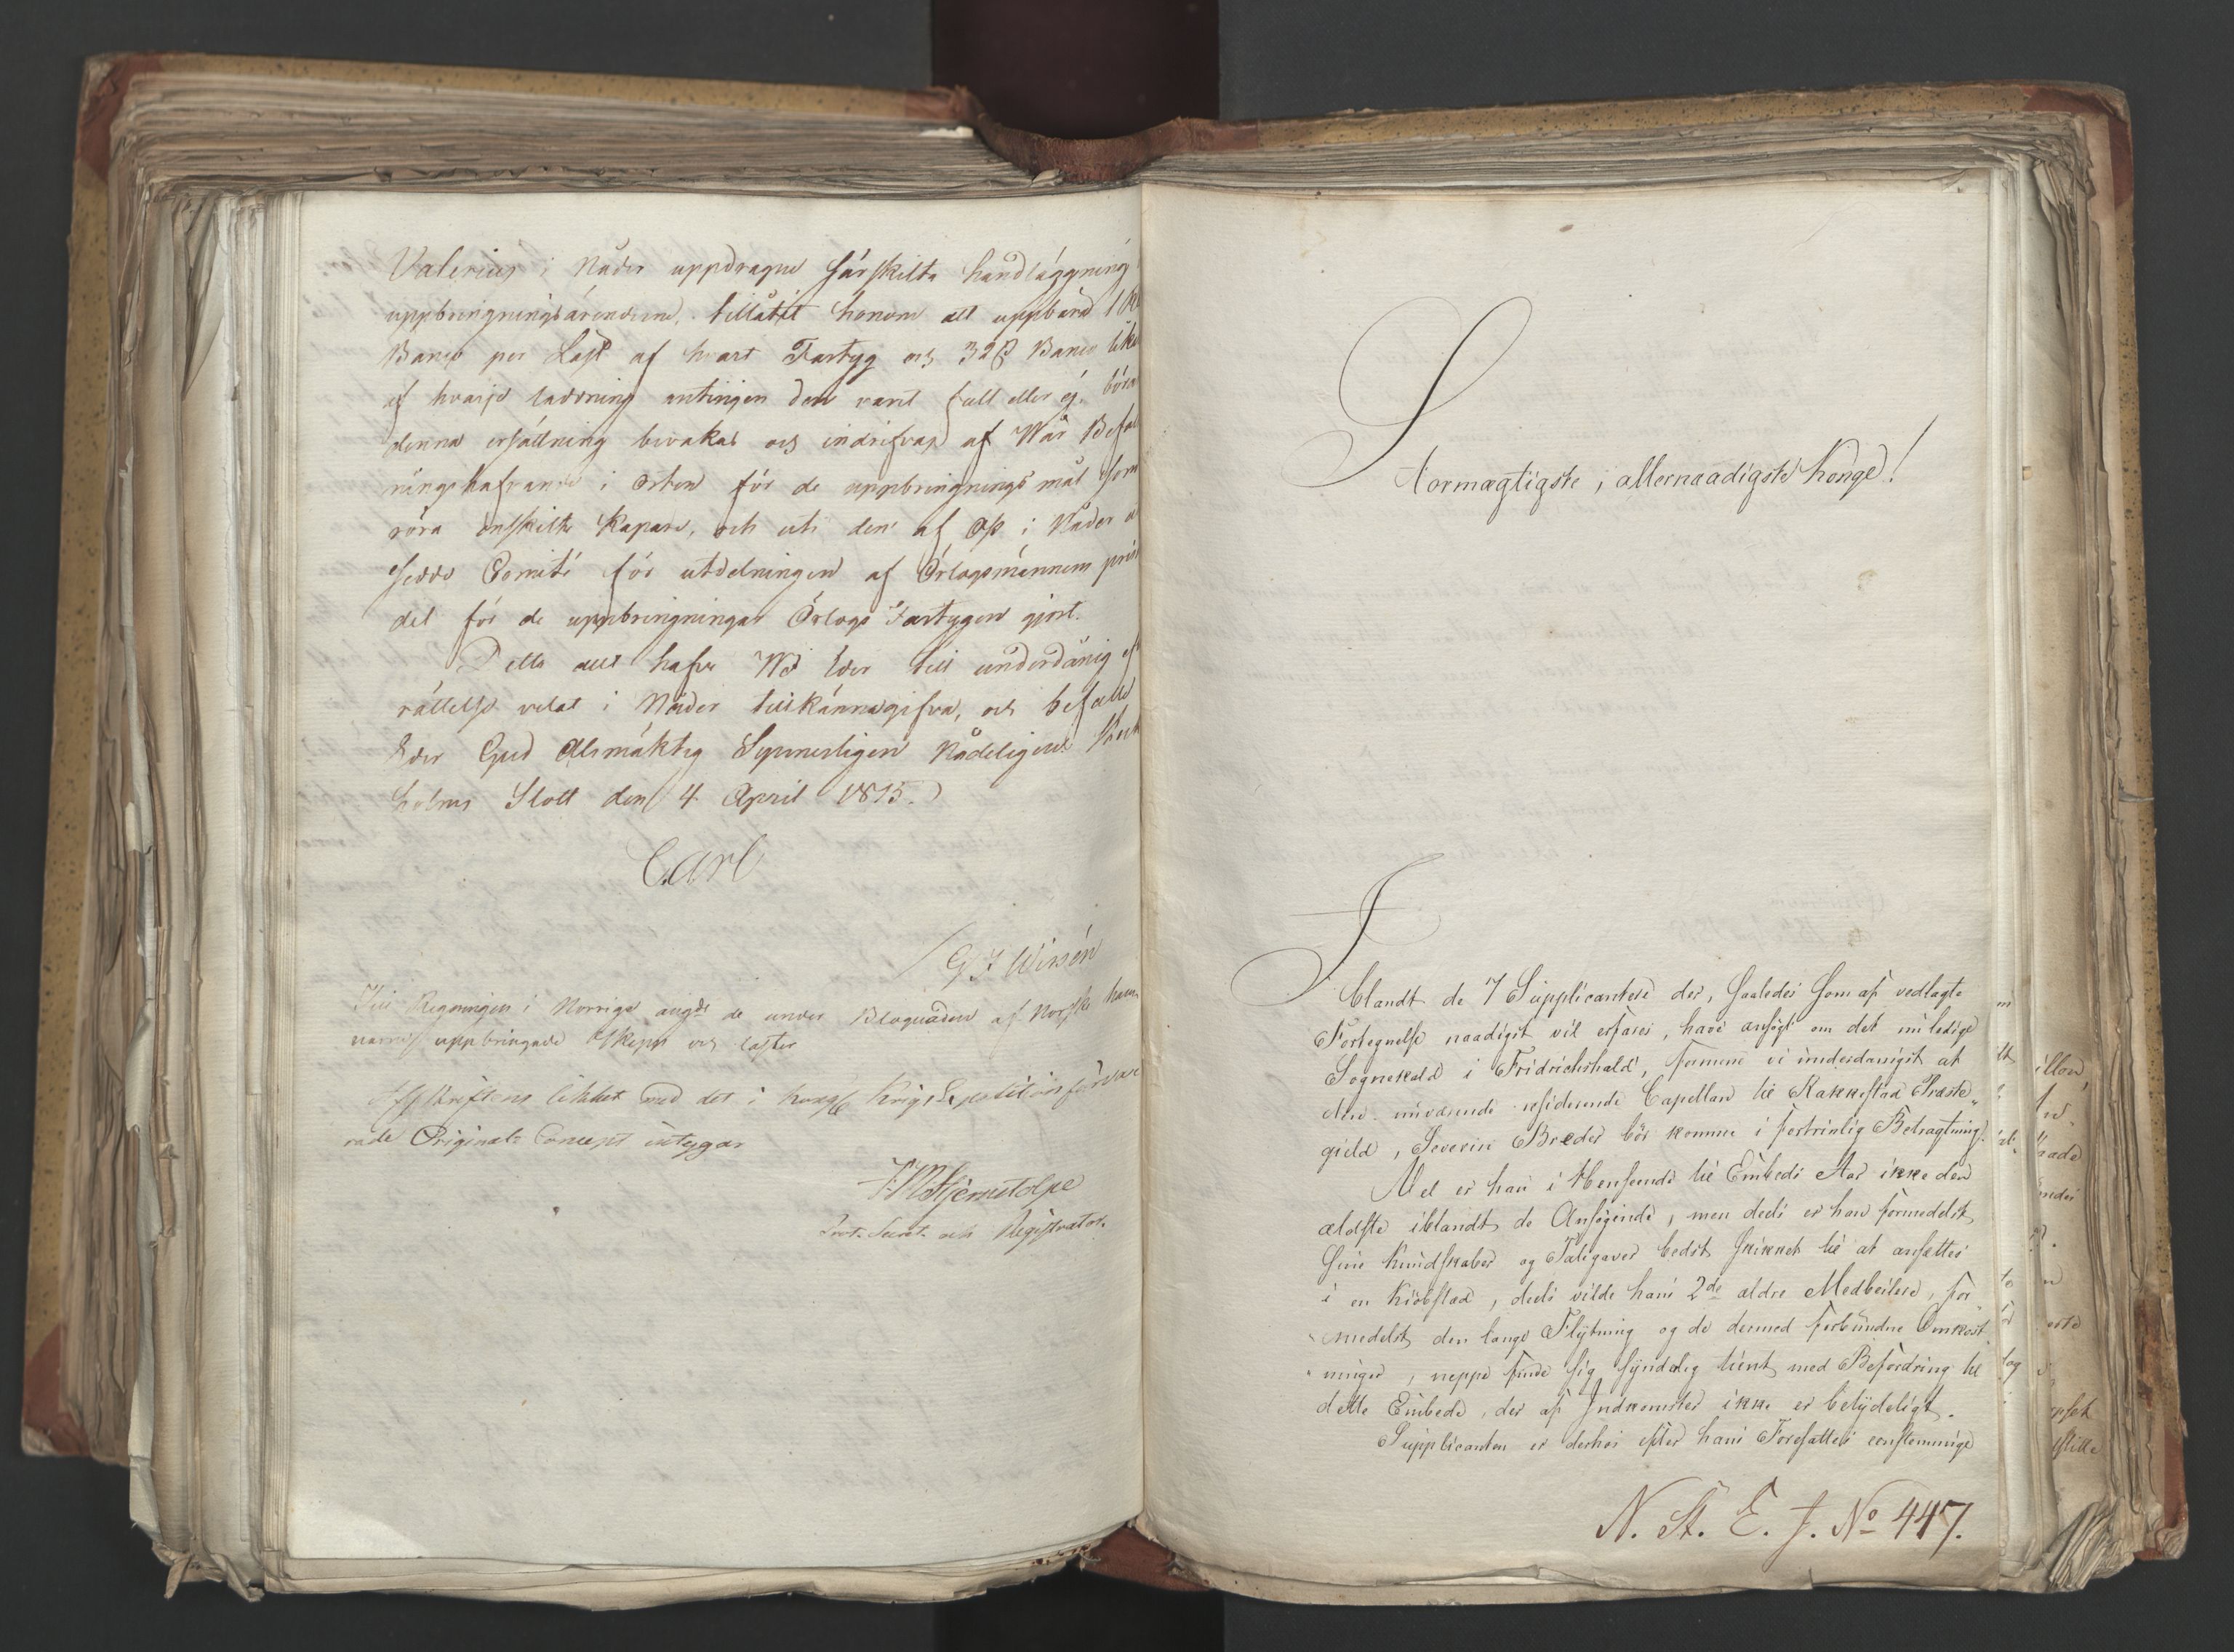 Valerius i Nåder uppdragne särskilta handläggning
uppbringningsärenderne, tillåtit honom att uppbära 1
Banco per Läst af hvart Fartyg och 32 ß Banco lika
af hvarje laddning antingen den varit full eller ej, böra
denna ersättning bevakas och indrifvas af Wår Befal
ningshafvande i orten för de uppbringningsmål som
röra enskilte Kapare, och uti den af Oss i Nåder
sedde Comité för utdelningen af Örlogsmännens pris
del för de uppbringningar Örlogs Fartygen gjort.
Detta allt hafve Wi Eder till underdånig ef
rättelse velat i Nåder tillkännagifva, och befalle
Eder Gud Allsmäktig Synnerligen Nådeligen. Stock
holms Slott den 4 April 1815.
Carl
G F Wirsén
Till Regeringen i Norrige angde de under Bloquaden af Norske ham
narne uppbringade Skepp och laster
Afskriftens likhet med det i Kongl Krigs Expeditionen förva
rade Original Concept intygar
Prot. Secret. och Registrator.
Stormægtigste, allernaadigste Konge!
Iblandt de 7 Supplicantere der, saaledes som af vedlagte
Fortegnelse naadigst vil erfares, have ansøgt om det nu ledige
Sognekald i Fridrichshald, formene vi underdanigst at
den nuværende residerende Capellan til Rakkestad Præste„
gield, Severin Breder bør komme i fortrinlig Betragtning.
Vel er han i Henseende til Embeds Aar ikke den
ældste iblandt de Ansøgende, men deels er han formedelst
sine Kundskaber og Talegaver bedst skikket til at ansættes
i en Kiøbstad, deels vilde hans 2de ældre Medbeilere, for„
„medelst den lange Flytning og de dermed forbundne Omkost„
„ninger, neppe finde sig synderlig tient med Befordring til
dette Embede, der af Indkomster ikke er betydeligt.
Supplicanten er derhos efter hans Foresattes eenstemmige
N. St. E. J. No 447.